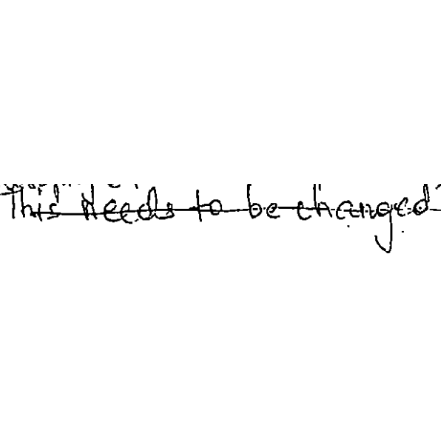 This needs to be changed